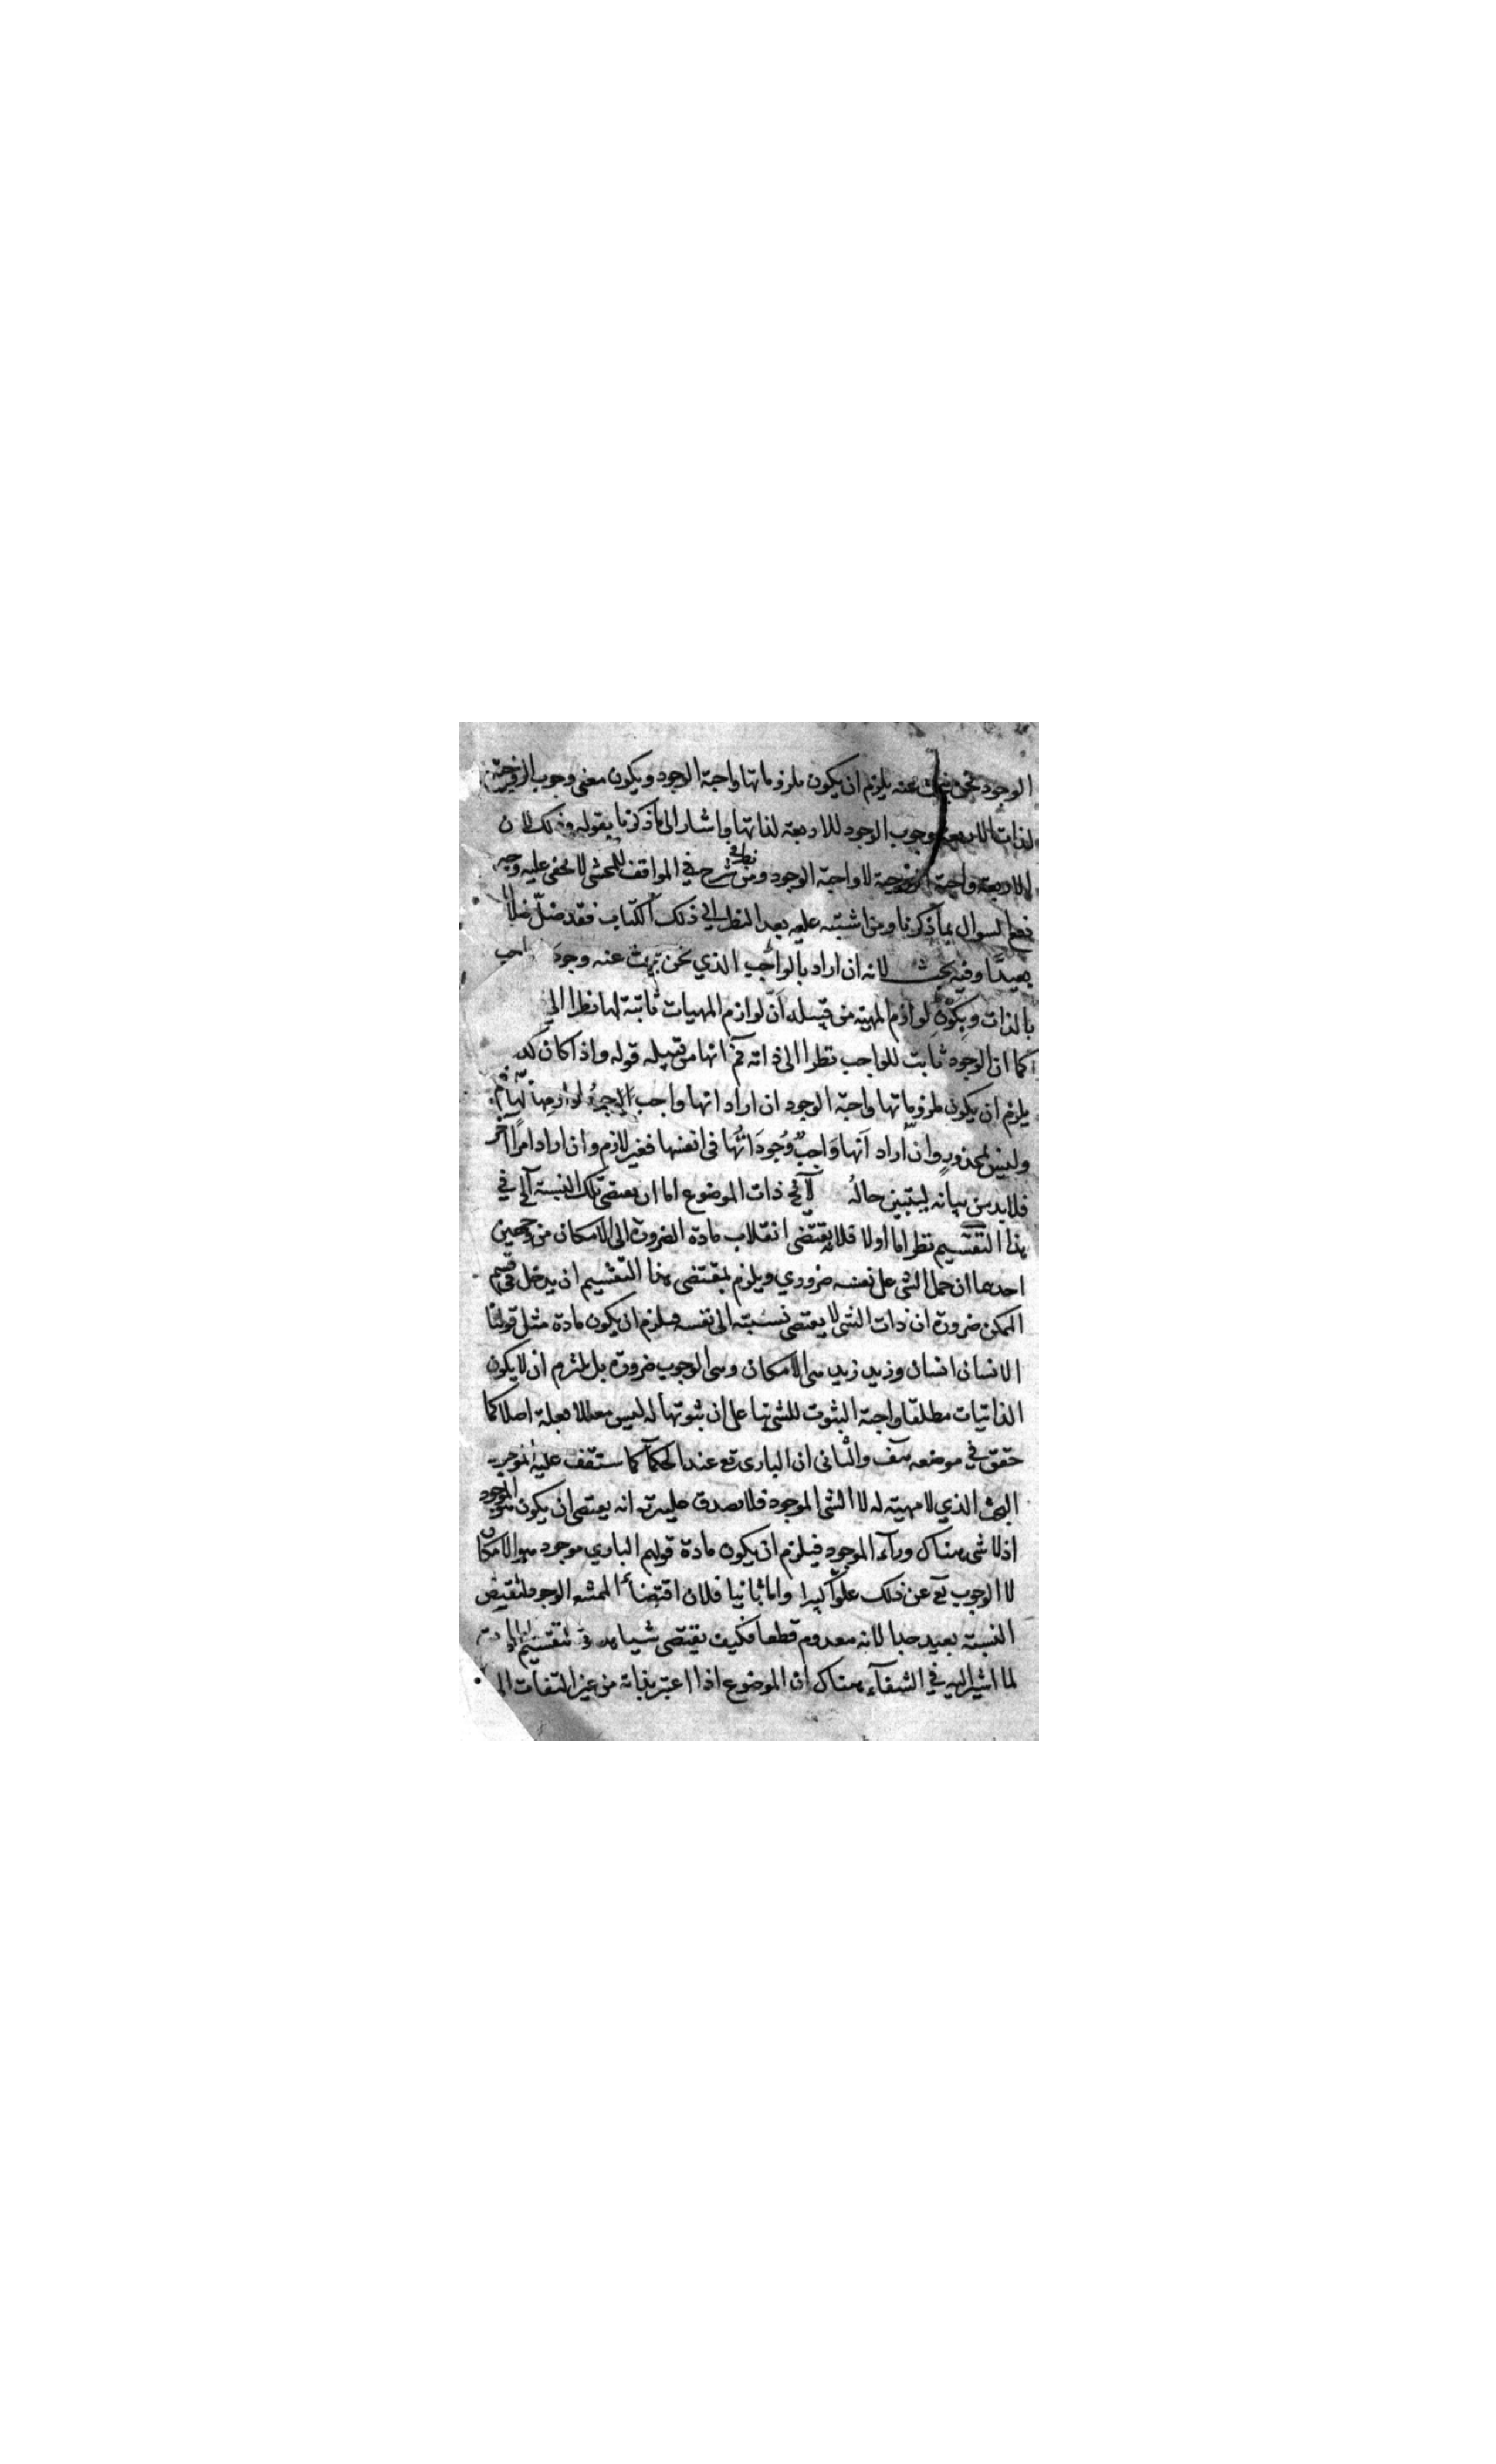 الوجود نحن نبحث عنه يلزم ان يكون ملزوماتها واجبة الوجود ويكون معنى وجوب الزوجية
لذات الاربعة وجوب الوجود للاربعة لذاتها واشار الى ما ذكرنا بقوله وذلك لان
الاربعة واجبة الزوجية لا واجبة الوجود ومن نظر في شرح المواقف للمحشى لا يخفى عليه وجه
دفع السوال بما ذكرنا ومن اشتبه عليه بعد النظر الى ذلك الكتاب فقد ضلّ ضلالا
بعيدًا وفيه بحث لانه ان اراد بالواجب الذي نحن نبحث عنه وجود
بالذات وبكون لوازم المهية من قبيله انّ لوازم المهيات ثابتة لها نظرا الى
كما ان الوجود ثابت للواجب نظرا الى ذاته فمّ انها من قبيله قوله واذا كان كذ
يلزم ان يكون ملزوماتها واجبة الوجود ان اراد انها واجب الوجود لوازمها لها فم
وليس بمحذور وان اراد انها واجب وجوداتها في انفسها فغير لازم وان اراد امرا آخر
فلا بد من بيانه ليتبين حاله لا يخ ذات الموضوع اما ان يقتضى تلك النسبة آلى في
هذا التقسيم نظر اما اولا فلانه يقتضى انقلاب مادة الضرورة الى الامكان من وجهين
احدهما ان حمل الشى على نفسه ضروري ويلزم بمقتضى هذا التقسيم ان يدخل في قسم
الممكن ضرورة ان ذات الشى لا يقتضى نسبته الى نفسه فيلزم ان يكون مادة مثل قولنا
الانسان انسان وزيد زيد هى الامكان وهى الوجوب ضرورة بل يلزم ان لا يكون
الذاتيات مطلقا واجبة الثبوت للشى بناء على ان ثبوتها له ليس معللا بعلة اصلا كما
حقق في موضعه هف والثانى ان البارى تع عند الحكمآ كما ستقف عليه الموجود
البحث الذي لا مهية له لا الشى الموجود فلا يصدق عليه تع انه يقتضى ان يكون هو الموجود
اذ لا شى هناك ورآء الموجود فيلزم ان يكون مادة قولهم الباري موجود هو الامكان
لا الوجوب تع عن ذلك علوّا كبيرا واما ثانيا فلان اقتضاء الممتنع الوجود لنقيض
النسبة بعيد جدا لانه معدوم قطعا فكيف يقتضى شيا هف فتقسيم المادة
لما اشير اليه في الشفآء هناك ان الموضوع اذا اعتبر بذاته من غير التفات الى